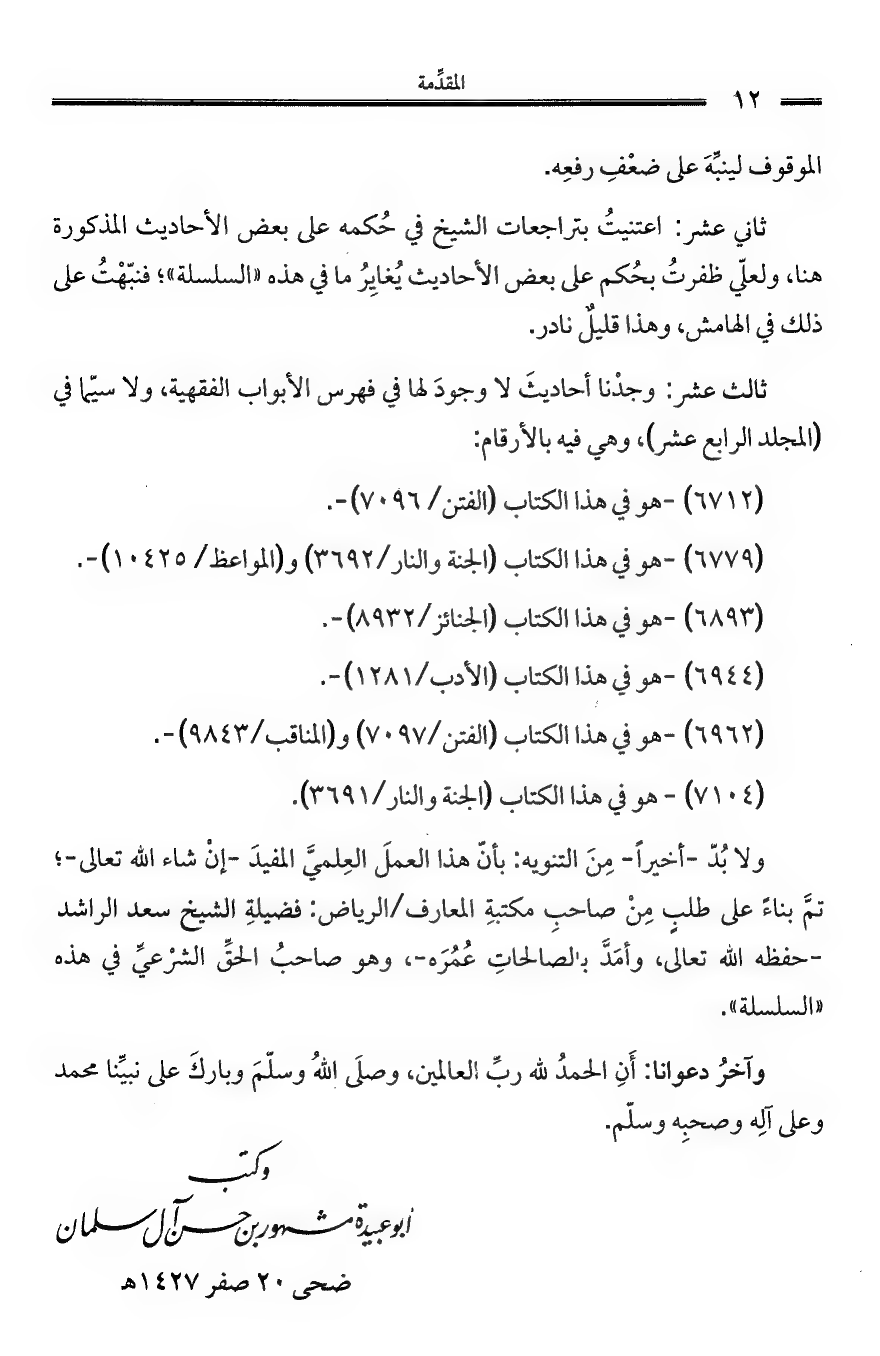 المقدِّمة
١٢
الموقوف لينبِّهَ على ضعْفِ رفعِه.
ثاني عشر: اعتنيتُ بتراجعات الشيخ في حُكمه على بعض الأحاديث المذكورة
هنا، ولعلّي ظفرتُ بحُكم على بعض الأحاديث يُغايِرُ ما في هذه «السلسلة»؛ فنبّهْتُ على
ذلك في الهامش، وهذا قليلٌ نادر.
ثالث عشر: وجدْنا أحاديثَ لا وجودَ لها في فهرس الأبواب الفقهية، ولا سيّما في
(المجلد الرابع عشر)، وهي فيه بالأرقام:
(٦٧١٢) -هو في هذا الكتاب (الفتن/ ٧٠٩٦)-.
(٦٧٧٩) -هو في هذا الكتاب (الجنة والنار/٣٦٩٢) و(المواعظ/ ١٠٤٢٥)-.
(٦٨٩٣) -هو في هذا الكتاب (الجنائز/٨٩٣٢)-.
(٦٩٤٤) -هو في هذا الكتاب (الأدب/١٢٨١)-.
(٦٩٦٢) -هو في هذا الكتاب (الفتن/٧٠٩٧) و(المناقب/٩٨٤٣)-.
(٧١٠٤) - هو في هذا الكتاب (الجنة والنار/٣٦٩١).
ولا بُدّ -أخيراً- مِنَ التنويه: بأنّ هذا العملَ العِلميَّ المفيدَ -إنْ شاء الله تعالى-؛
تمَّ بناءً على طلبٍ مِنْ صاحبِ مكتبةِ المعارف/الرياض: فضيلةِ الشيخ سعد الراشد
-حفظه الله تعالى، وأمَدَّ بالصالحاتِ عُمُرَه-، وهو صاحبُ الحقِّ الشرْعيِّ في هذه
«السلسلة».
وآخرُ دعوانا: أَنِ الحمدُ لله ربِّ العالمين، وصلَى اللهُ وسلّمَ وباركَ على نبيِّنا محمد
وعلى آلِه وصحبِه وسلّم.
وكتب
أبو عبيدة مشهور بن حسن آل سلمان
ضحى ٢٠ صفر ١٤٢٧هـ